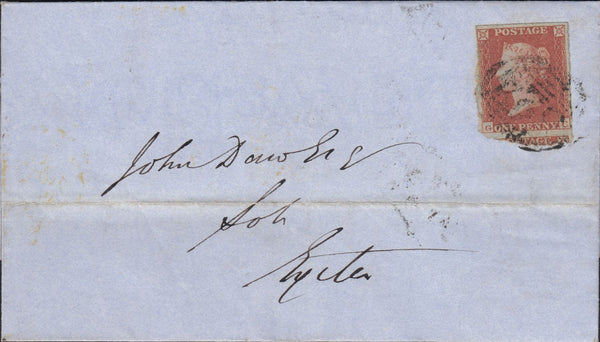 POSTAGE
ONE PENNY
John Daw Esq
Solr
Exeter